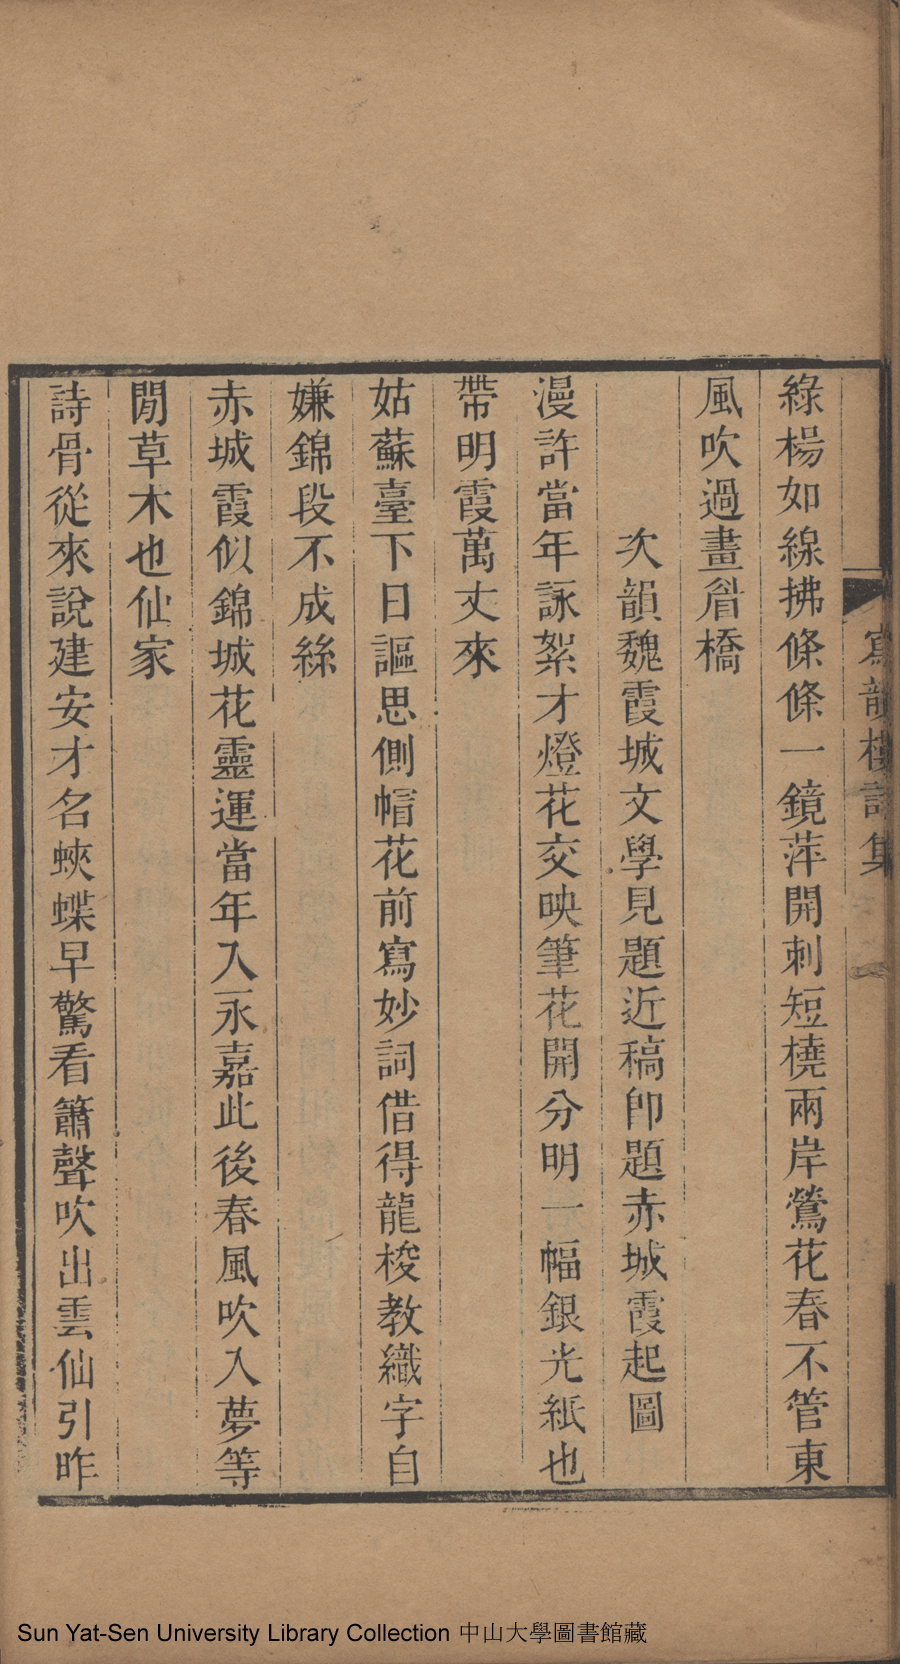 寫韻樓詩集
綠楊如線拂條條一鏡萍開刺短橈兩岸鶯花春不管東
風吹過畫眉橋
次韻魏霞城文學見題近稿卽題赤城霞起圖
漫許當年詠絮才燈花交映筆花開分明一幅銀光紙也
帶明霞萬丈來
姑蘇臺下日謳思側帽花前寫妙詞借得龍梭教織字自
嫌錦段不成絲
赤城霞似錦城花靈運當年入永嘉此後春風吹入夢等
閒草木也仙家
詩骨從來說建安才名蛺蝶早驚看簫聲吹出雲仙引昨
Sun Yat-Sen University Library Collection 中山大學圖書館藏